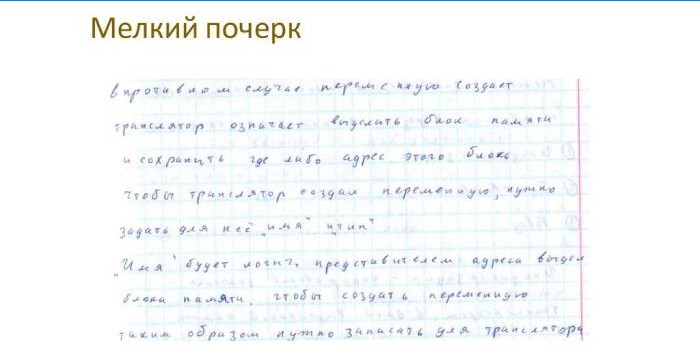 Мелкий почерк
в противном случае переменную создает
транслятор означает выделить блок памяти
и сохранить где либо адрес этого блока
чтобы транслятор создал переменную, нужно
задать для неё „имя" и „тип"
„Имя" будет логич. представителем адреса выдел
блока памяти. чтобы создать переменную
таким образом нужно записать для транслятора